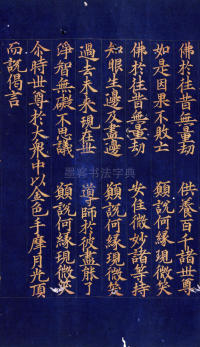 佛於往昔無量劫　供養百千諸世尊
如是因果不敗亡　願說何緣現微笑
佛於往昔無量劫　安住微妙諸等持
知眼生邊及盡邊　願說何緣現微笑
過去未來現在世　導師於彼盡能了
淨智無礙不思議　願說何緣現微笑
尒時世尊於大衆中以金色手摩月光頂
而說偈言
墨客书法字典